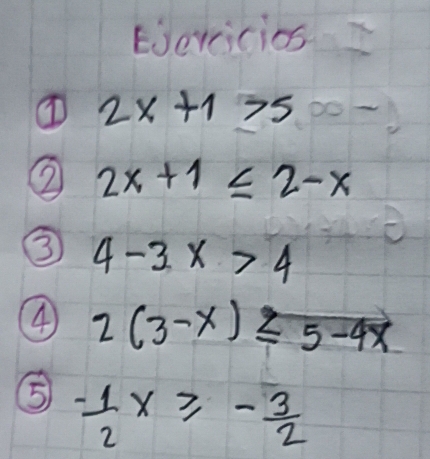 Ejercicios
① 2x + 1 > 5
② 2x + 1 ≤ 2 - x
③ 4 - 3x > 4
④ 2(3 - x) ≥ 5 - 4x
⑤ -1/2 x ≥ -3/2